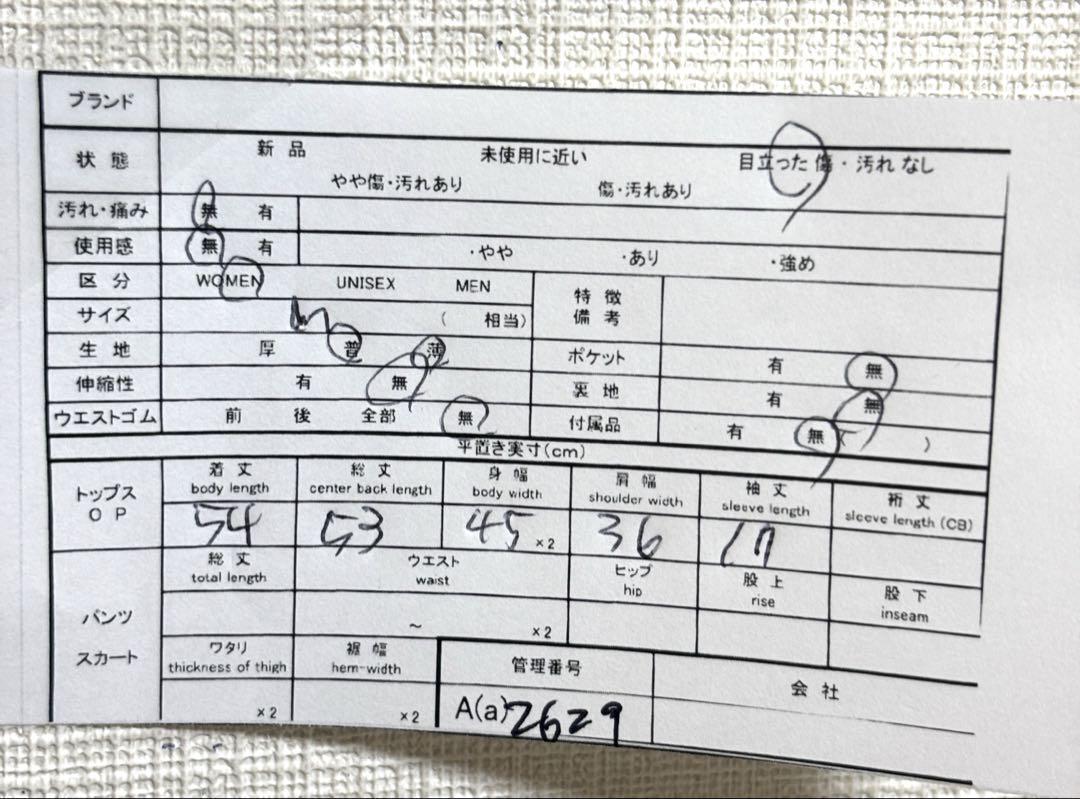 ブランド
状態 新品 未使用に近い 目立った傷・汚れなし
やや傷・汚れあり 傷・汚れあり
汚れ・痛み 無 有
使用感 無 有 ・やや ・あり ・強め
区分 WOMEN UNISEX MEN 特徴備考
サイズ M ( 相当)
生地 厚 普 薄 ポケット 有 無
伸縮性 有 無 裏地 有 無
ウエストゴム 前 後 全部 無 付属品 有 無 ( )
平置き実寸(cm)
トップス OP 着丈 総丈 身幅 肩幅 袖丈 裄丈
body length center back length body width shoulder width sleeve length sleeve length (CB)
54 53 45 ×2 36 17
パンツ スカート 総丈 ウエスト ヒップ 股上 股下
total length waist hip rise inseam
～ ×2
ワタリ 裾幅 管理番号 会社
thickness of thigh hem-width
×2 ×2 A(a) 2629